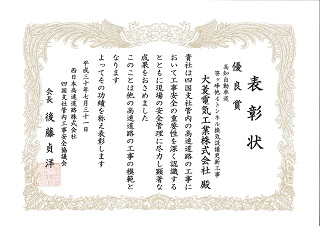 表彰状
優良賞
高知自動車道
笹ヶ峰他4トンネル換気設備更新工事
大菱電気工業株式会社 殿
貴社は四国支社管内の高速道路の工事に
おいて工事安全の重要性を深く認識する
とともに現場の安全管理に尽力し顕著な
成果をおさめました
このことは他の高速道路の工事の模範と
なります
よってその功績を称え表彰します
平成三十年七月三十一日
西日本高速道路株式会社
四国支社管内工事安全協議会
会長 後藤貞洋